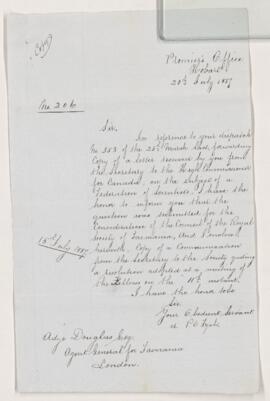 Copy
Premier's Office
Hobart
20th July 1887
No 206
Sir,
In reference to your despatch
No 353 of the 25th March last, forwarding
Copy of a letter received by you from
the Secretary to the High Commissioner
for Canada, on the subject of a
Federation of Scientists, I have the
honor to inform you that the
question was submitted for the
Consideration of the Council of the Royal
Society of Tasmania, and I enclose
herewith, Copy of a Communication
15th July 1887
from the Secretary to the Society giving
a resolution adopted at a meeting of
the Fellows on the 11th instant.
I have the honor to be
Sir
Your Obedient Servant
P. O. Fysh
Adye Douglas Esq
Agent General for Tasmania
London.